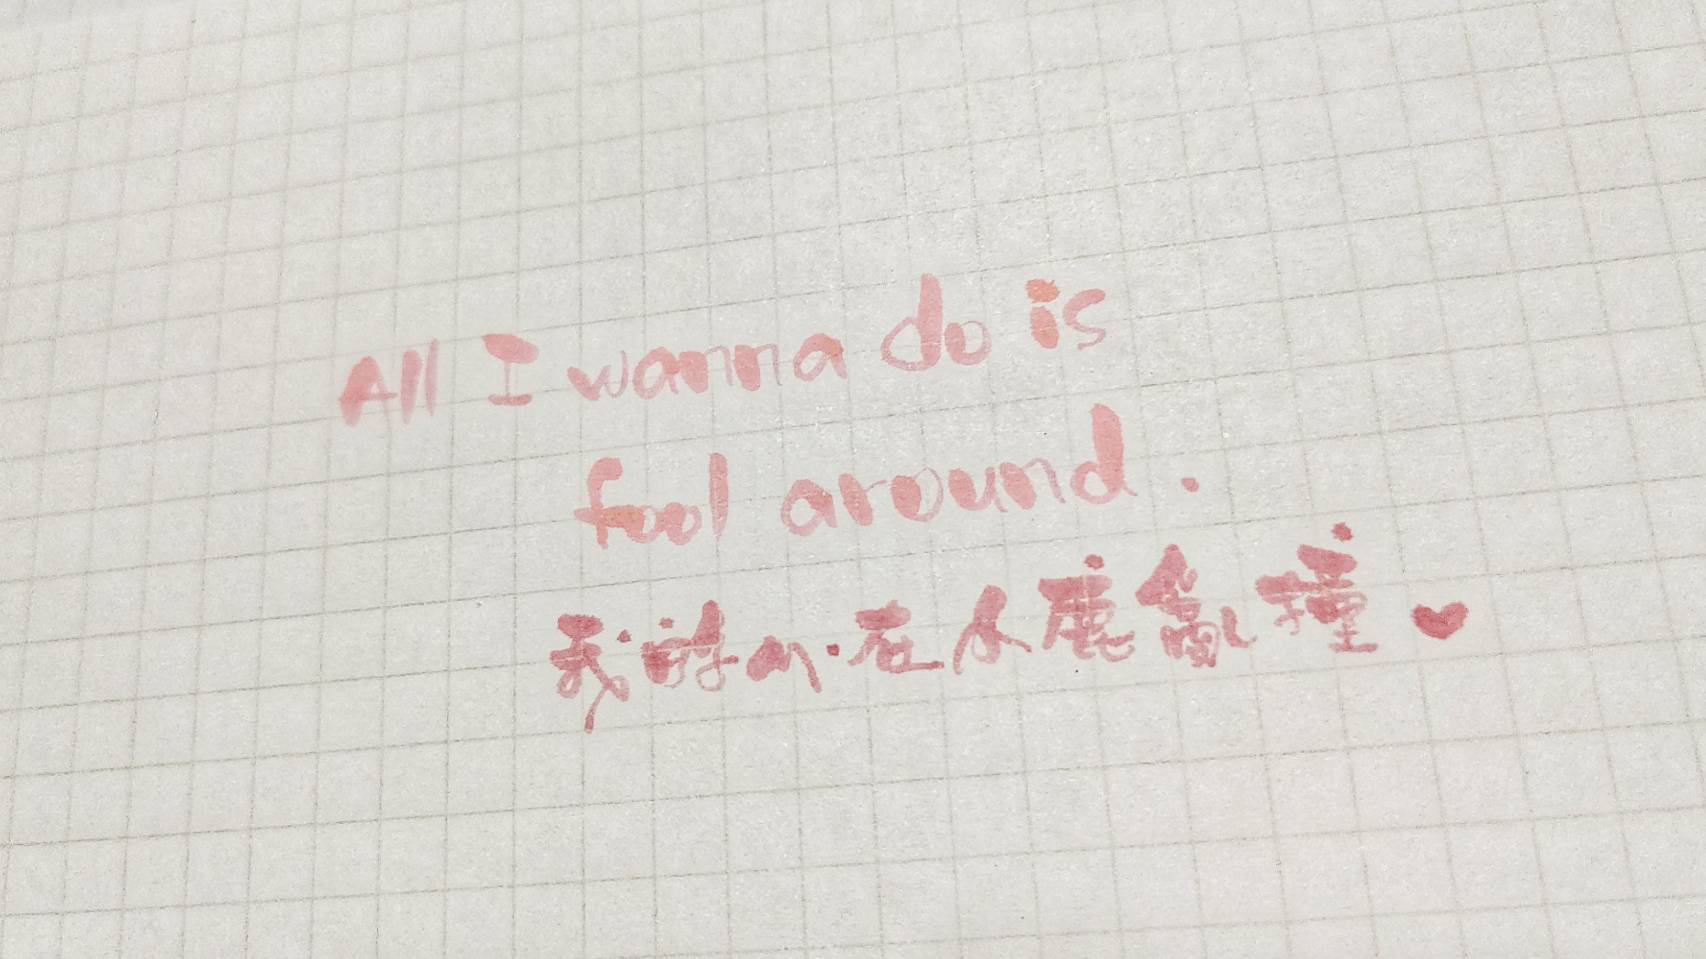 All I wanna do is
fool around.
我的心在小鹿亂撞♥